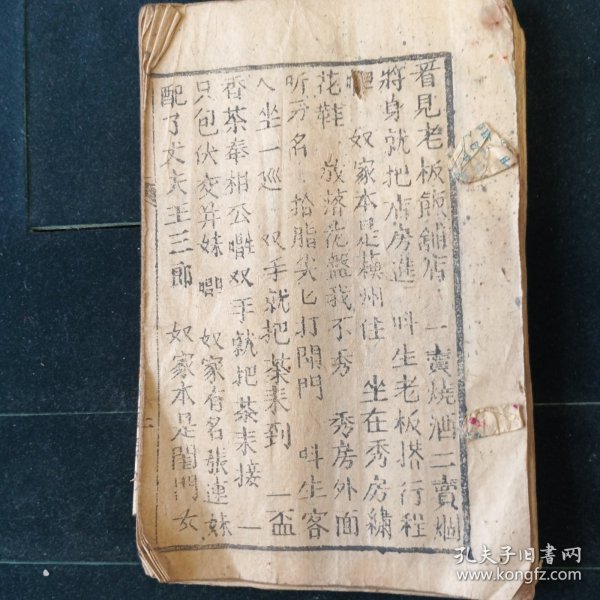 看見老板飯舖店 一賣燒酒二賣烟
將身就把店房進 呌生老板搭行程
唧 奴家本是蘇州住 坐在秀房繡
花鞋 放落花盤我不秀 秀房外面
听分名 拾脂尖匕打開門 呌生客
人坐一巡 双手就把茶来到 一盃
香茶奉相公唧双手就把茶来接 一
只包伏交奔妹唧 奴家有名張連妹
配了丈夫王三郎 奴家本是閨門女
二
孔夫子旧書网
www.kongfz.com